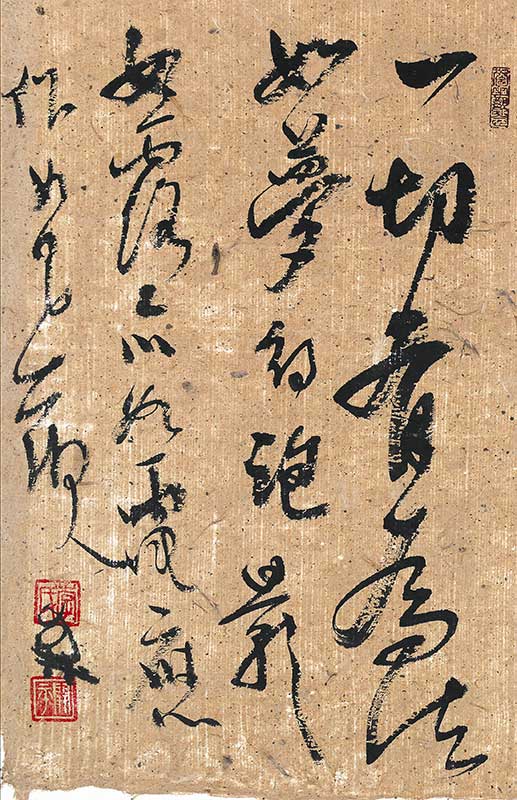 一切有為法
如夢幻泡影
如露亦如電應
作如是觀